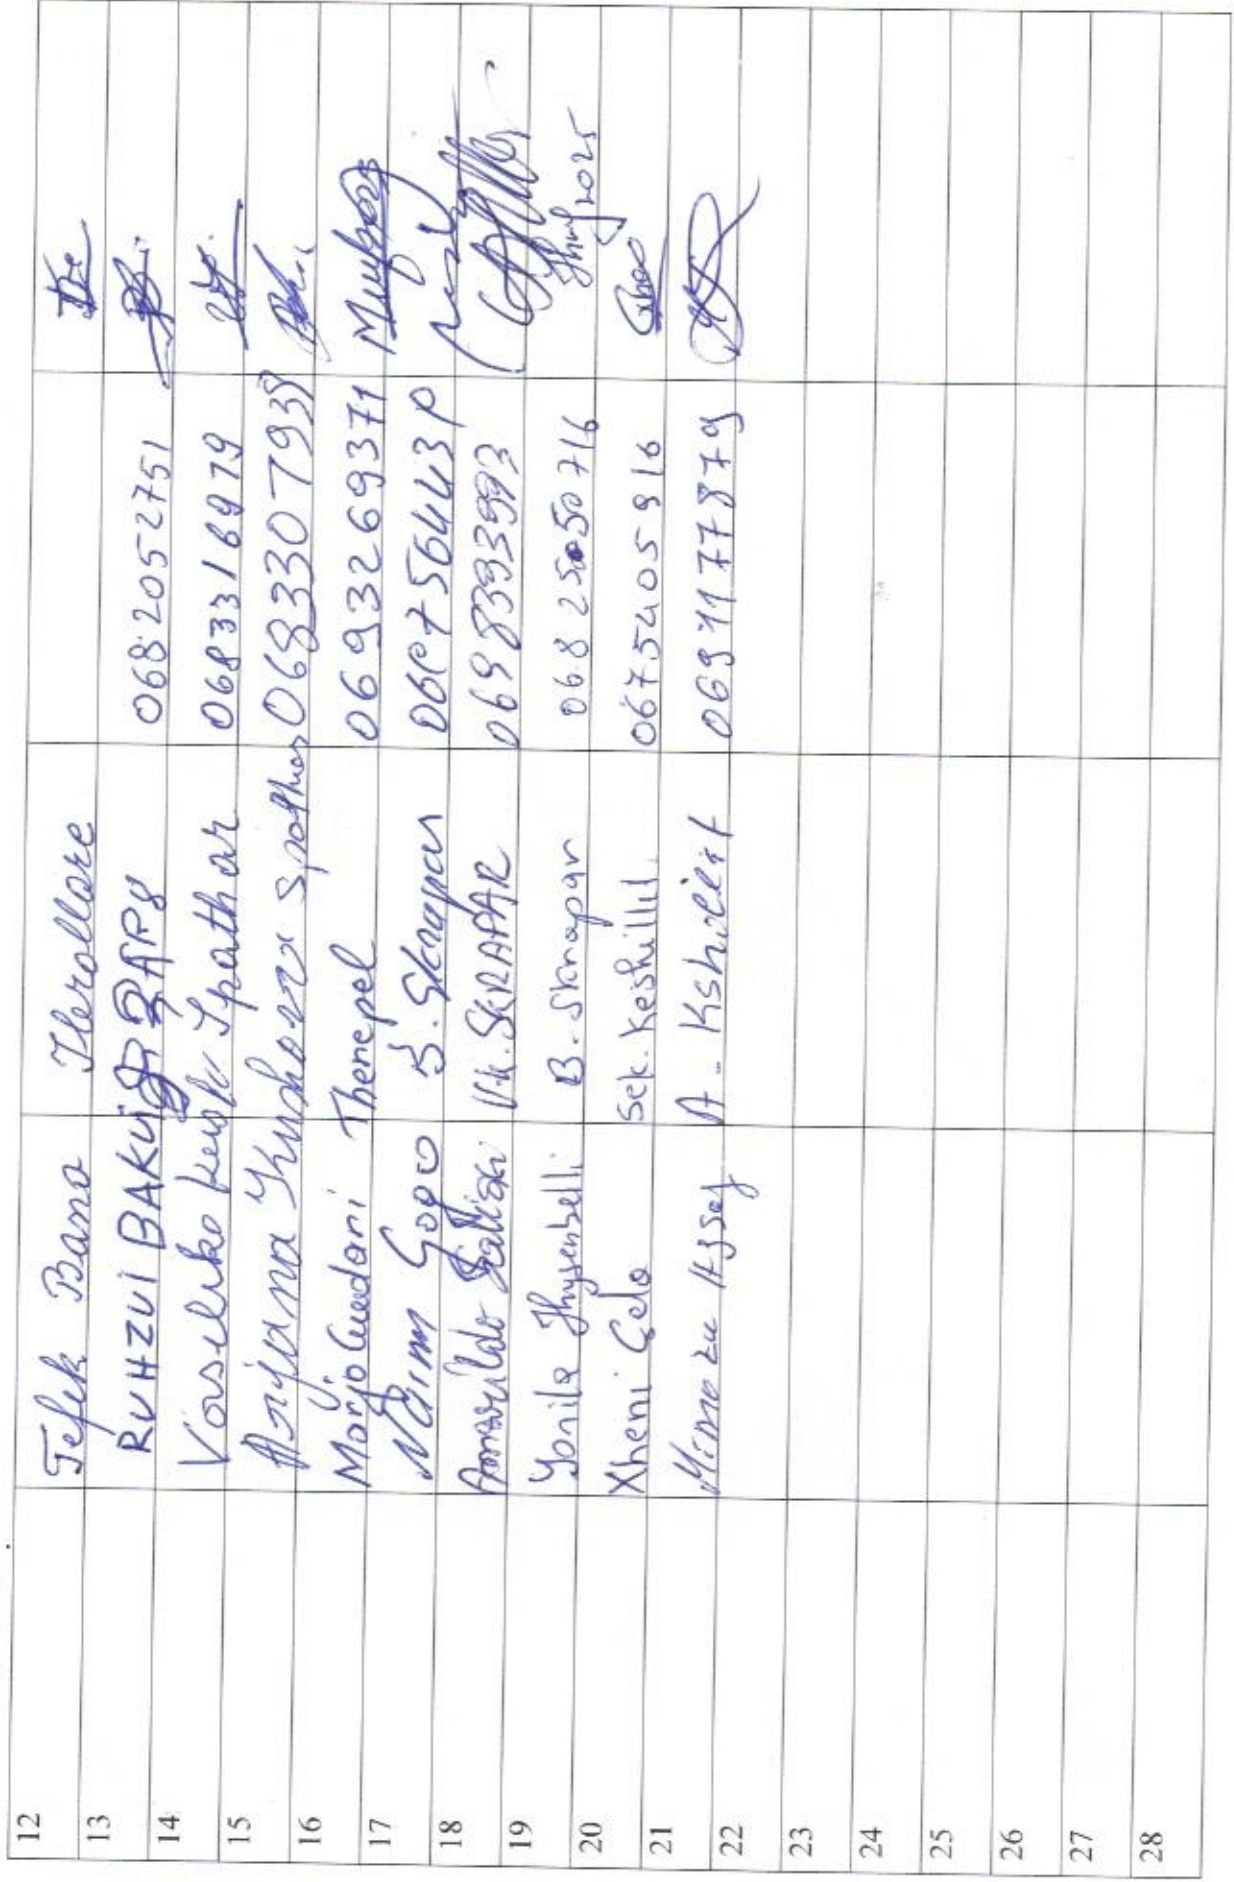 12 Tefik Bano Therollare
13 RUHZUI BAKU ZAPR 0682052751
14 Vasilika Spathar 0683316979
15 Arjana Spathar 0683307938
16 Marjo Cuedari Therepel 0693269371
17 Naim Gogo B. Skrapar
18 Amarildo V.k. SKRAPAR 0698393993
19 Jonila Hysenbelli B. Skrapar 06825050716 2025
20 Xheni Çela Sek. Keshillit 0675405916
21 Mimoza A. Kshillit 0691177879
22
23
24
25
26
27
28